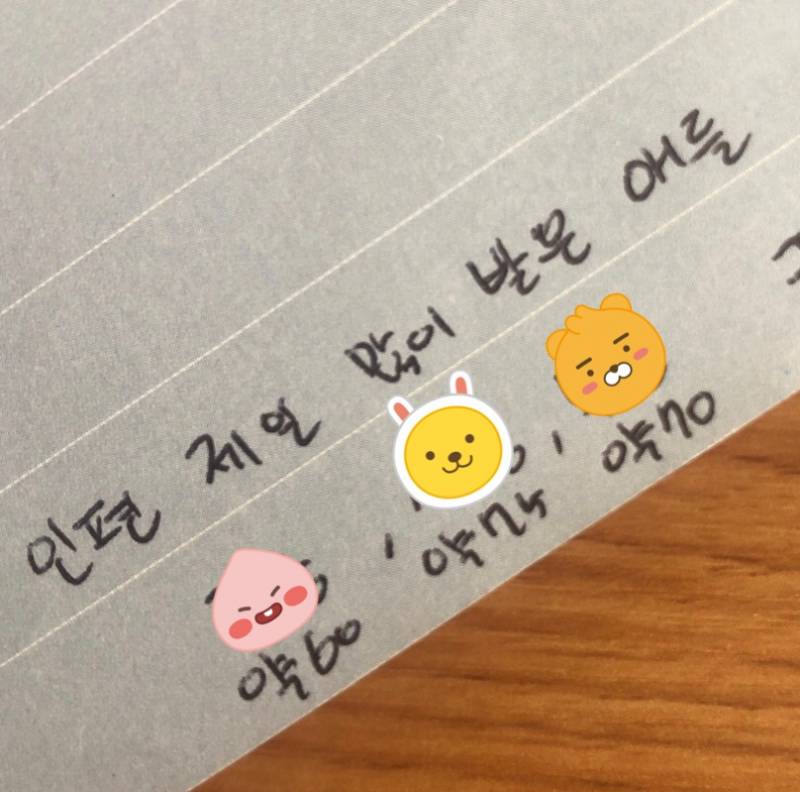 인편 제일 많이 받은 애들
, ,
약60 약75 약70